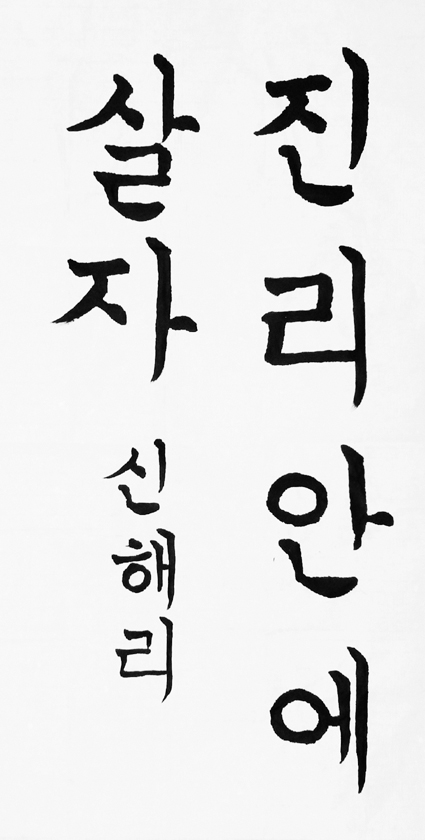 진리안에
살자
신해리